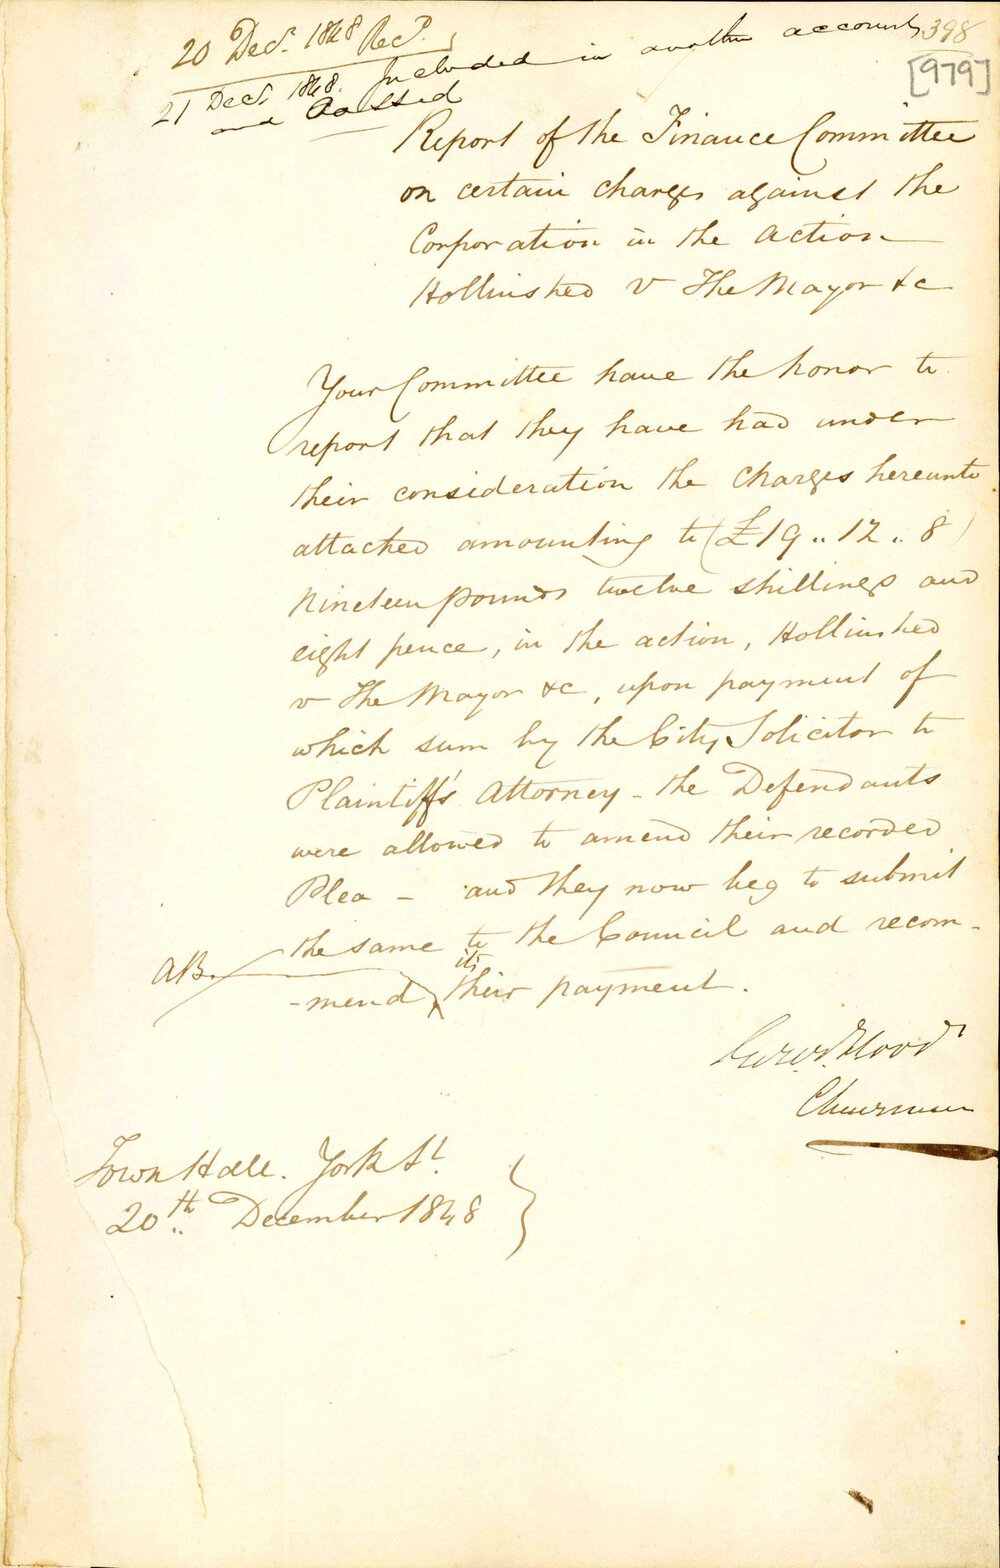 20 Decr. 1848 Recd.
398
[979]
21 Decr 1848. Included in another account,
and Passed
Report of the Finance Committee
on certain charges against the
Corporation in the action
Hollinshed v The Mayor &c
Your Committee have the honor to
report that they have had under
their consideration the charges hereunto
attached amounting to (£19..12..8)
Nineteen pounds twelve shillings and
eight pence, in the action, Hollinshed
v The Mayor &c, upon payment of
which sum by the City Solicitor to
Plaintiff's Attorney - the Defendants
were allowed to amend their recorded
Plea - and they now beg to submit
the same to the Council and recom-
AB.
its
-mend their payment.
Flood
Chairman
Town Hall. York St.
20th. December 1848